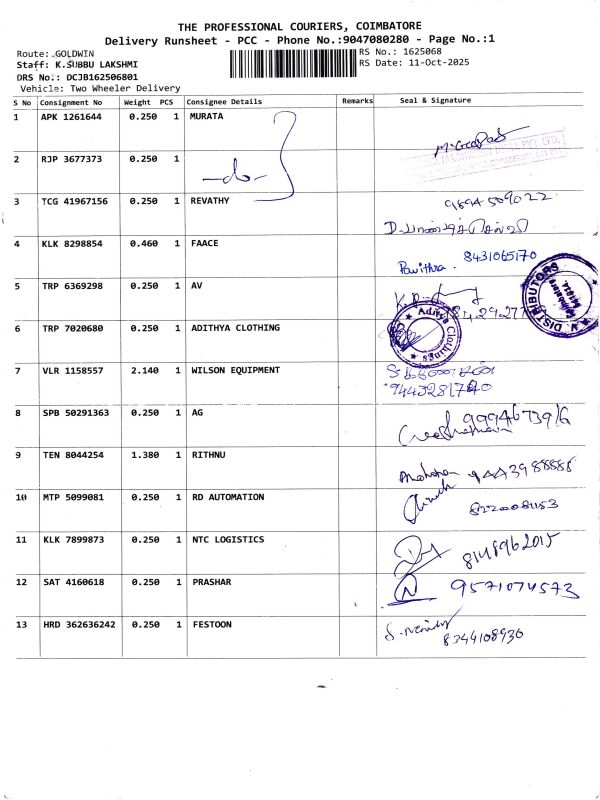 THE PROFESSIONAL COURIERS, COIMBATORE
Delivery Runsheet - PCC - Phone No.:9047080280 - Page No.:1
Route: GOLDWIN
RS No.: 1625068
Staff: K.SUBBU LAKSHMI
RS Date: 11-Oct-2025
DRS No.: DCJB162506801
Vehicle: Two Wheeler Delivery
S No Consignment No Weight PCS Consignee Details Remarks Seal & Signature
1 APK 1261644 0.250 1 MURATA
2 RJP 3677373 0.250 1 -do-
3 TCG 41967156 0.250 1 REVATHY 9894509022
4 KLK 8298854 0.460 1 FAACE Pavithra. 8431065170
5 TRP 6369298 0.250 1 AV
DISTRIBUTORS
6 TRP 7020680 0.250 1 ADITHYA CLOTHING Aditya Clothings
7 VLR 1158557 2.140 1 WILSON EQUIPMENT
9443281740
8 SPB 50291363 0.250 1 AG
9 TEN 8044254 1.380 1 RITHNU 9443988886
10 MTP 5099081 0.250 1 RD AUTOMATION
11 KLK 7899873 0.250 1 NTC LOGISTICS 8148962015
12 SAT 4160618 0.250 1 PRASHAR 9571074573
13 HRD 362636242 0.250 1 FESTOON
8344108936